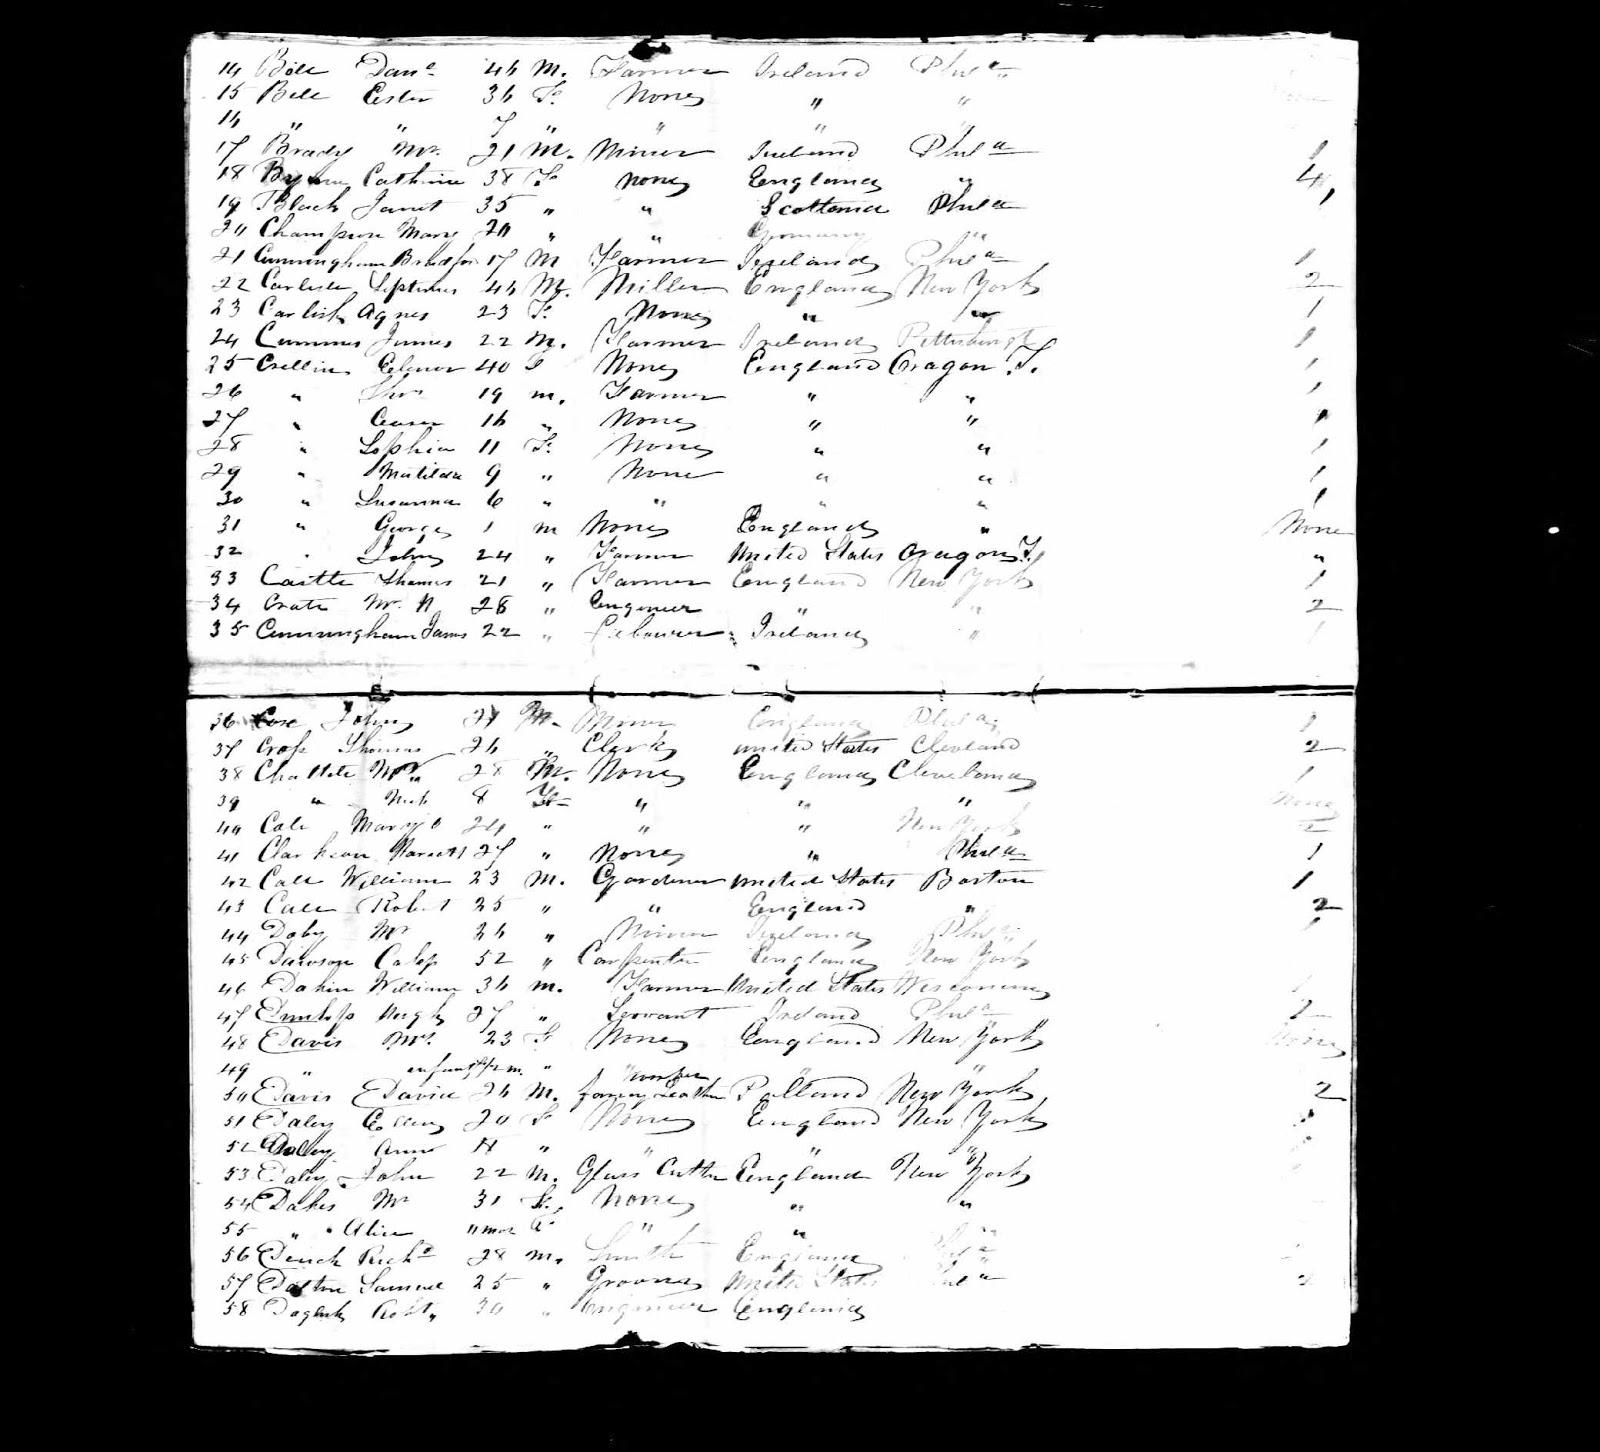 14 Bell Dan¹ 46 M. Farmer Ireland Phil a
15 Bell Ester 36 F. None " "
16 " " 7 " " "
17 Brady Mr. 21 M. Miner Ireland Phil a 1
18 Byrne Cathrine 38 F. None England " 4
19 Black Janet 35 " " Scotland Phil a
20 Champion Mary 20 " " Germany "
21 Cunningham 17 M Farmer Ireland Phil a 1
22 Carlisle Septimus 46 M. Miller England New York 2
23 Carlisle Agnes 23 F. None " " 1
24 James 22 M. Farmer Ireland Pittsburgh 1
25 Crellin Elenor 40 F None England Oragon T. 1
26 " Thos 19 m. Farmer " " 1
27 " 16 " None " " 1
28 " Sophia 11 F. None " " 1
29 " Matilda 9 " None " " 1
30 " Susanna 6 " " " " 1
31 " George 1 m None England " None
32 " John 24 " Farmer United States Oragon T. "
33 Castle Thomas 21 " Farmer England New York 1
34 28 " Engineer " " 2
35 Cunningham James 22 " Labourer Ireland " 1
36 John 21 M. Miner England Phil a 1
37 Cross Thomas 26 " Clerk United States Cleveland 2
38 28 None England Cleveland 1
39 " 8 " " " None
40 Cale Mary 24 " " " New York 2
41 27 " None " Phil a 1
42 Cale William 23 M. Gardener United States Boston 1
43 Cale Robert 25 " " England " 2
44 Doby Mr 26 " Miner Ireland Phil a 1
45 Dawson 52 " Carpenter England New York
46 Dakin William 36 m. Farmer United States Wisconsin 1
47 Dunlop Hugh 27 " Servant Ireland Phil a 2
48 Davis Mrs. 23 F. None England New York None
49 " infant m. " " "
50 Davis David 26 M. fancy Leather worker Polland New York 2
51 Daley Ellen 20 F None England New York
52 Daley Ann " " " "
53 Daley John 22 M. Glass Cutter England New York
54 31 None " "
55 " " Alice 11 mos " " "
56 Richd 28 m. Smith England Phil a
57 Dalton Samuel 25 " Groom United States Phil a 2
58 Robt. 30 " Engineer England